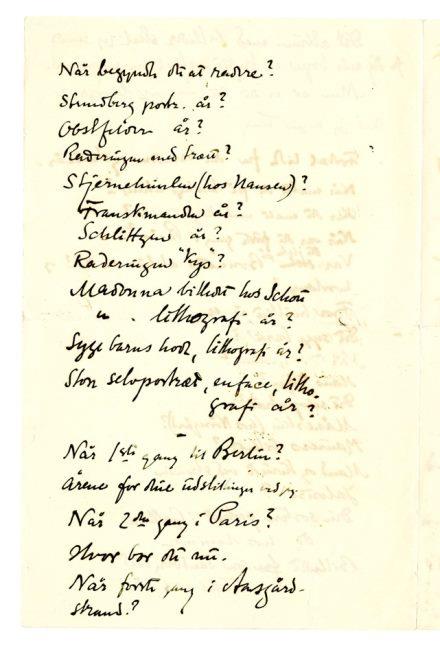 Når begyndte du at radere?
Strindberg portr. år?
Obstfelder år?
Raderingen med træet?
Stjernehimlen (hos Hansen)?
Franskmanden år?
Schlittgen år?
Raderingen "Kys"?
Madonna billedet hos Schou
" . lithografi år?
Syge barns hode, lithografi år?
Stort selvportræt, enface, litho-
grafi år?
Når 1ste gang til Berlin?
Årene for dine udstillinger
Når 2den gang i Paris?
Hvor bor du nu.
Når første gang i Aasgård-
strand?